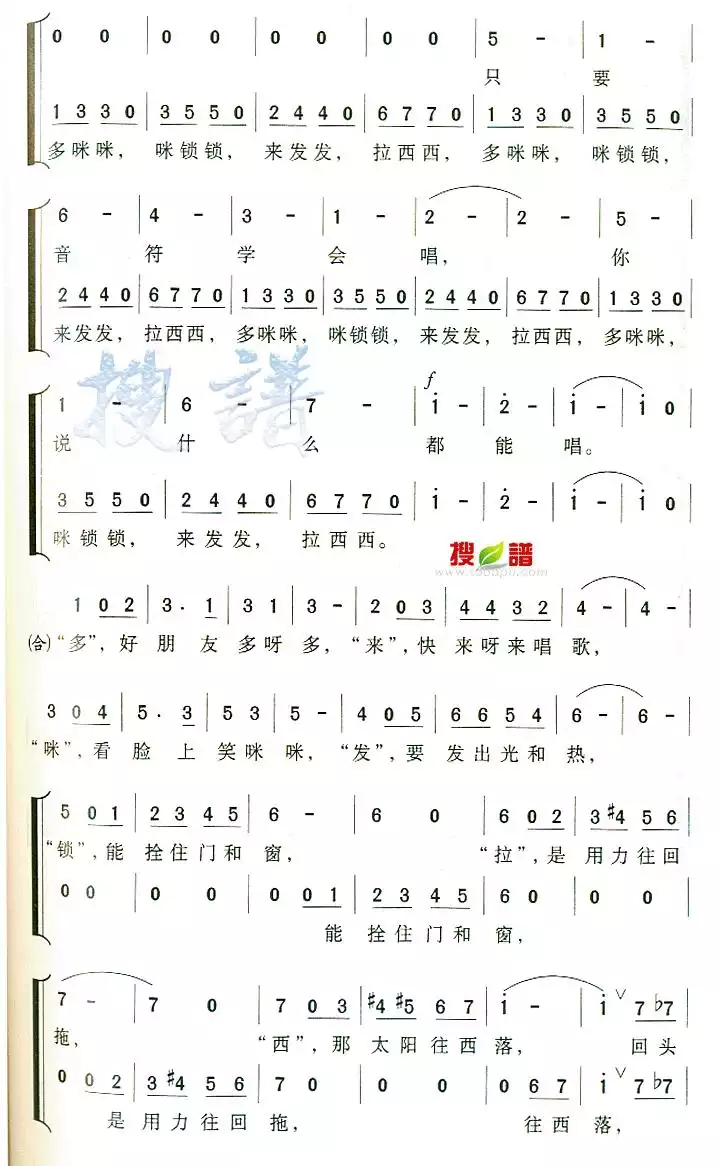 0 0 | 0 0 | 0 0 | 0 0 | 5 - | 1 - |
只 要
1 3 3 0 | 3 5 5 0 | 2 4 4 0 | 6 7 7 0 | 1 3 3 0 | 3 5 5 0 |
多咪咪, 咪锁锁, 来发发, 拉西西, 多咪咪, 咪锁锁,
6 - | 4 - | 3 - | 1 - | 2 - | 2 - | 5 - |
音 符 学 会 唱, 你
2 4 4 0 | 6 7 7 0 | 1 3 3 0 | 3 5 5 0 | 2 4 4 0 | 6 7 7 0 | 1 3 3 0 |
来发发, 拉西西, 多咪咪, 咪锁锁, 来发发, 拉西西, 多咪咪,
搜 谱
f
1 - | 6 - | 7 - | i - | 2̇ - | i - | i 0
说 什 么 都 能 唱。
3 5 5 0 | 2 4 4 0 | 6 7 7 0 | i - | 2̇ - | i - | i 0
咪锁锁, 来发发, 拉西西。
搜 谱
1 0 2 | 3 . 1 | 3 1 | 3 - | 2 0 3 | 4 4 3 2 | 4 - | 4 - |
(合)“多”, 好 朋 友 多 呀 多, “来”, 快 来 呀 来 唱 歌,
3 0 4 | 5 . 3 | 5 3 | 5 - | 4 0 5 | 6 6 5 4 | 6 - | 6 - |
“咪”, 看 脸 上 笑 咪 咪, “发”, 要 发 出 光 和 热,
5 0 1 | 2 3 4 5 | 6 - | 6 0 | 6 0 2 | 3 #4 5 6 |
“锁”, 能 拴 住 门 和 窗, “拉”, 是 用 力 往 回
0 0 | 0 0 | 0 0 1 | 2 3 4 5 | 6 0 | 0 0 |
能 拴 住 门 和 窗,
7 - | 7 0 | 7 0 3 | #4 #5 6 7 | i - | i ∨ 7 b7 |
拖, “西”, 那 太 阳 往 西 落, 回 头
0 0 2 | 3 #4 5 6 | 7 0 | 0 0 | 0 6 7 | i ∨ 7 b7 |
是 用 力 往 回 拖, 往 西 落,